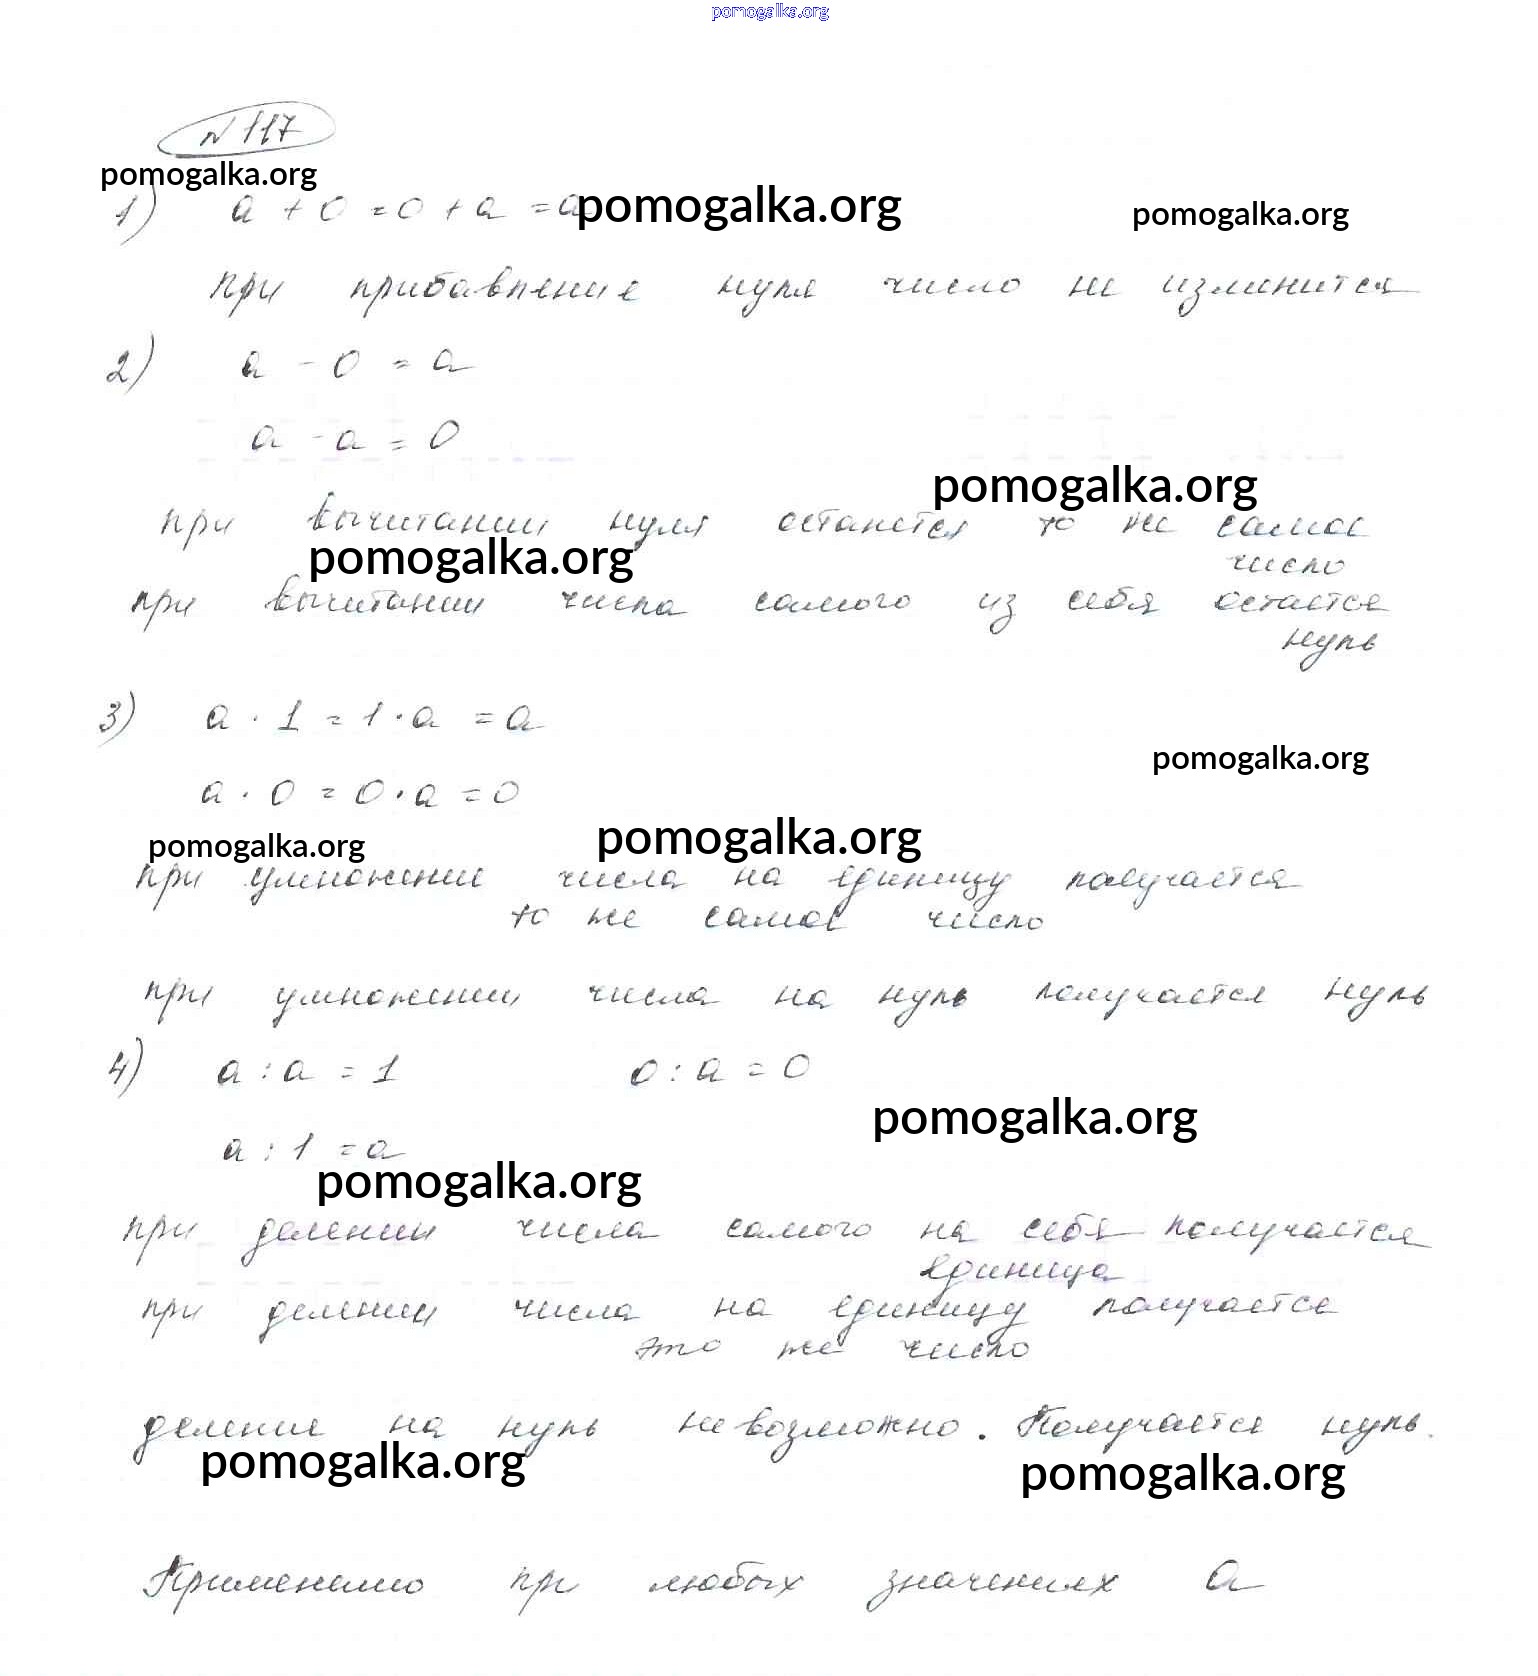 pomogalka.org
N 117
pomogalka.org
1) a + 0 = 0 + a = a pomogalka.org pomogalka.org
при прибавление нуля число не изменится
2) a - 0 = a
a - a = 0
pomogalka.org
при вычитании нуля останется то же самое
число
pomogalka.org
при вычитании числа самого из себя остается
нуль
3) a · 1 = 1 · a = a
pomogalka.org
a · 0 = 0 · a = 0
pomogalka.org pomogalka.org
при умножение числа на единицу получается
то же самое число
при умножении числа на нуль получается нуль
4) a : a = 1 0 : a = 0
pomogalka.org
a : 1 = a
pomogalka.org
при делении числа самого на себя получается
единица
при делении числа на единицу получается
это же число
деление на нуль невозможно. Получается нуль.
pomogalka.org pomogalka.org
Применимо при любых значениях a